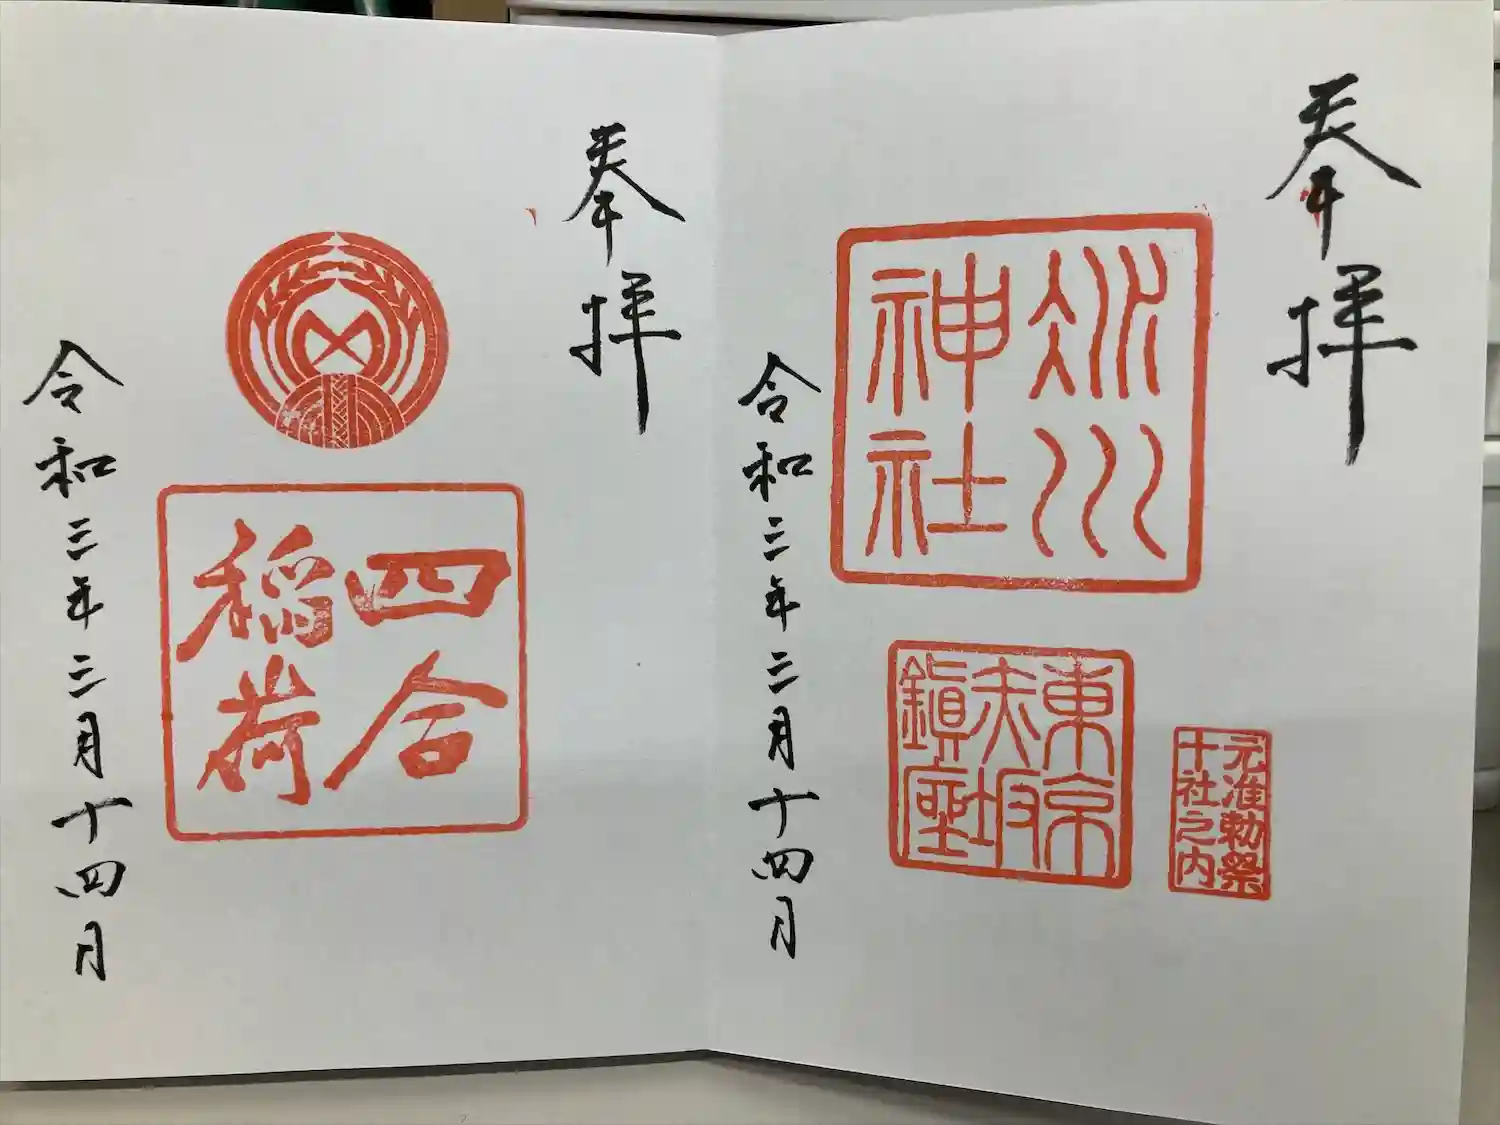 奉拝
冰川
神社
東京
赤坂
鎭座
元准勅祭
十社之内
令和三年三月十四日
奉拝
四合
稲荷
令和三年三月十四日